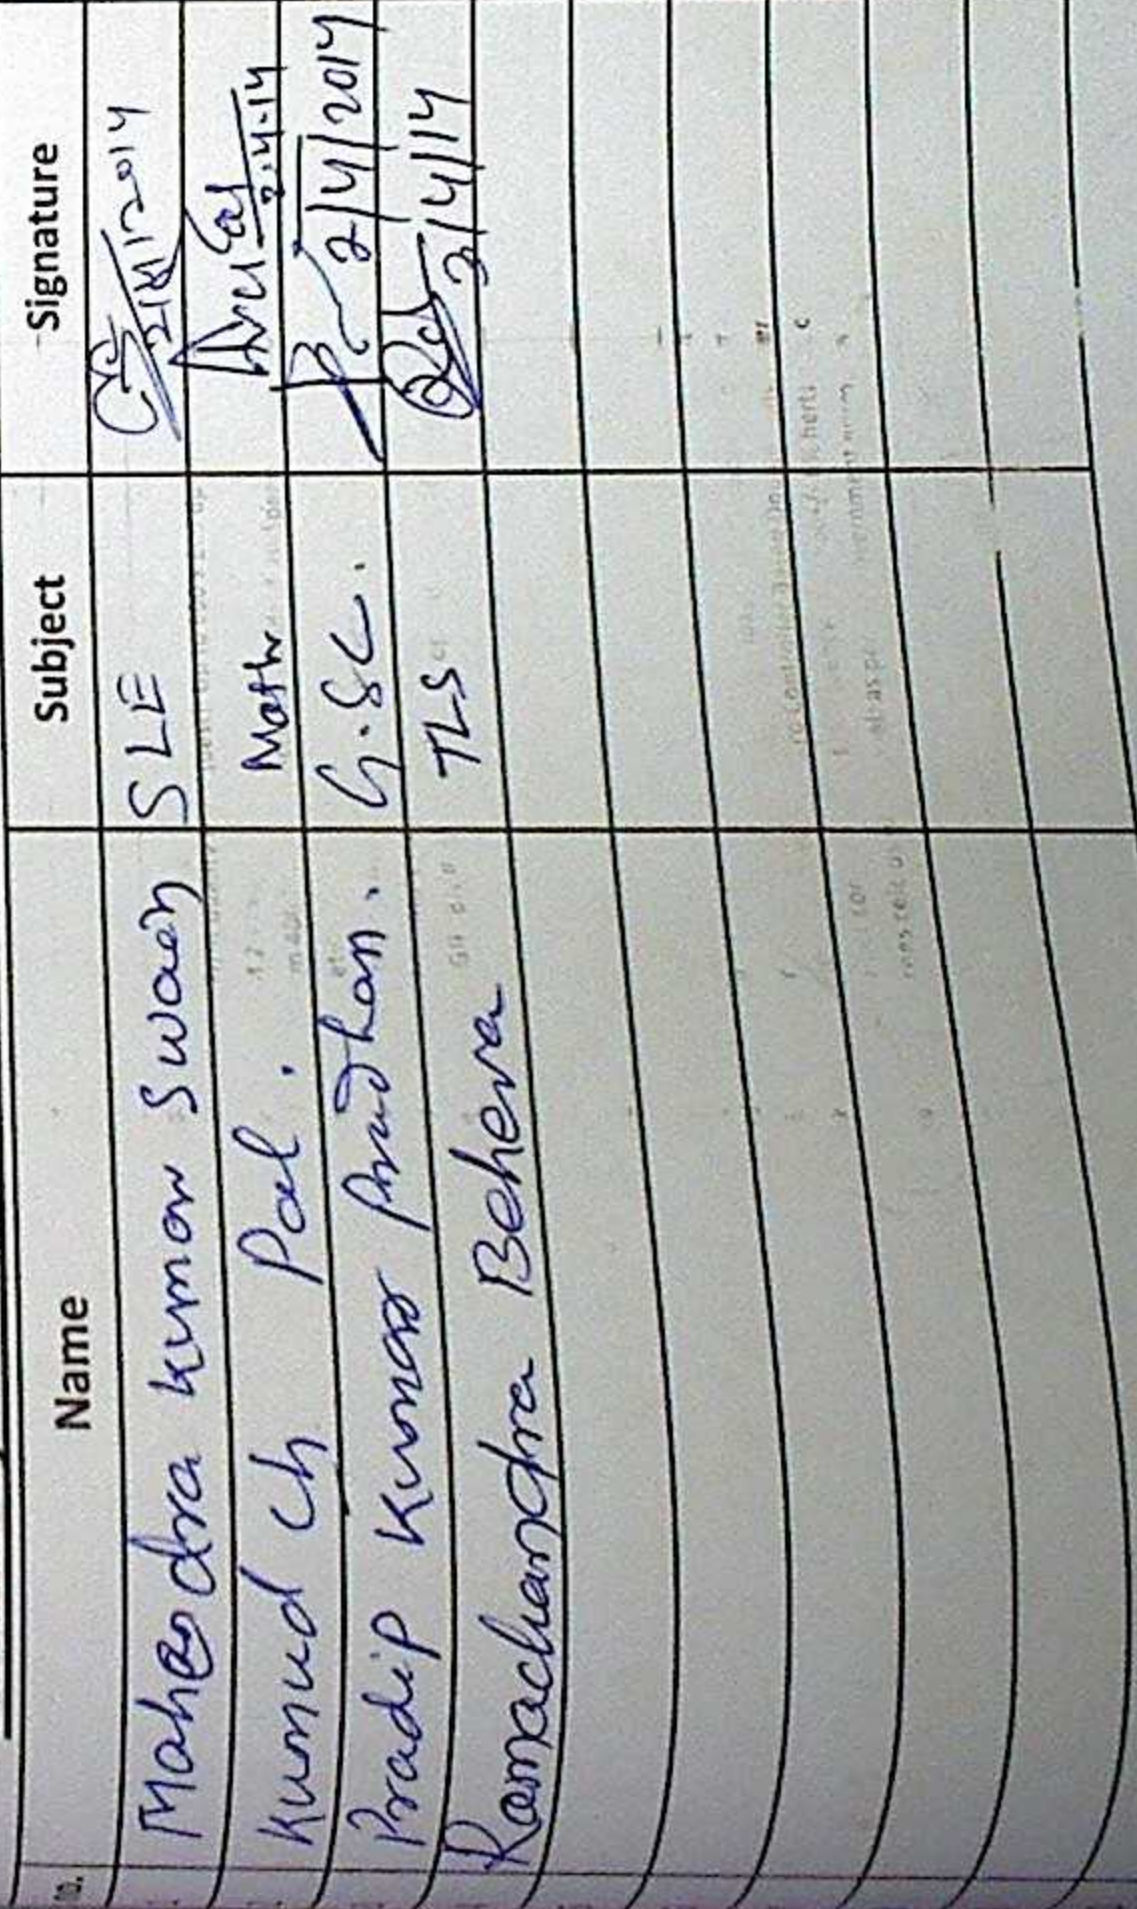 Name Subject Signature
Mahendra Kumar Swain SLE 2/4/2014
Kumud Ch Pal. Math 2.4.14
Pradip Kumar Pradhan. G.SC. 2/4/2014
Ramachandra Behera TLS 2/4/14